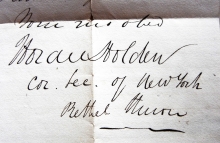 Horace Holden
Cor. Sec. of New York
Bethel Union